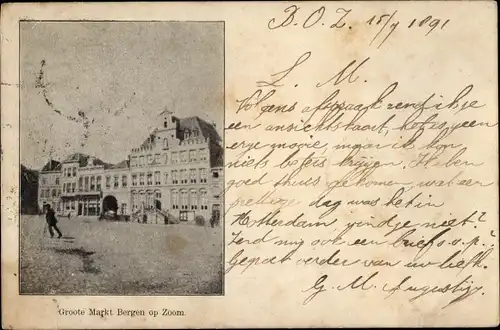 B. O. Z. 15/7 1891
L. M.
Volgens afspraak zend ik je
een ansichtskaart, het is geen
erge mooie, maar ik kon
niets beters krijgen. Ik ben
goed thuis gekomen, wat een
prettige dag was het in
Rotterdam vind je niet?
Zend mij ook een briefk s.v.p.?
Gegroet verder van uw liefh.
G. M. Augustijn
Groote Markt Bergen op Zoom.